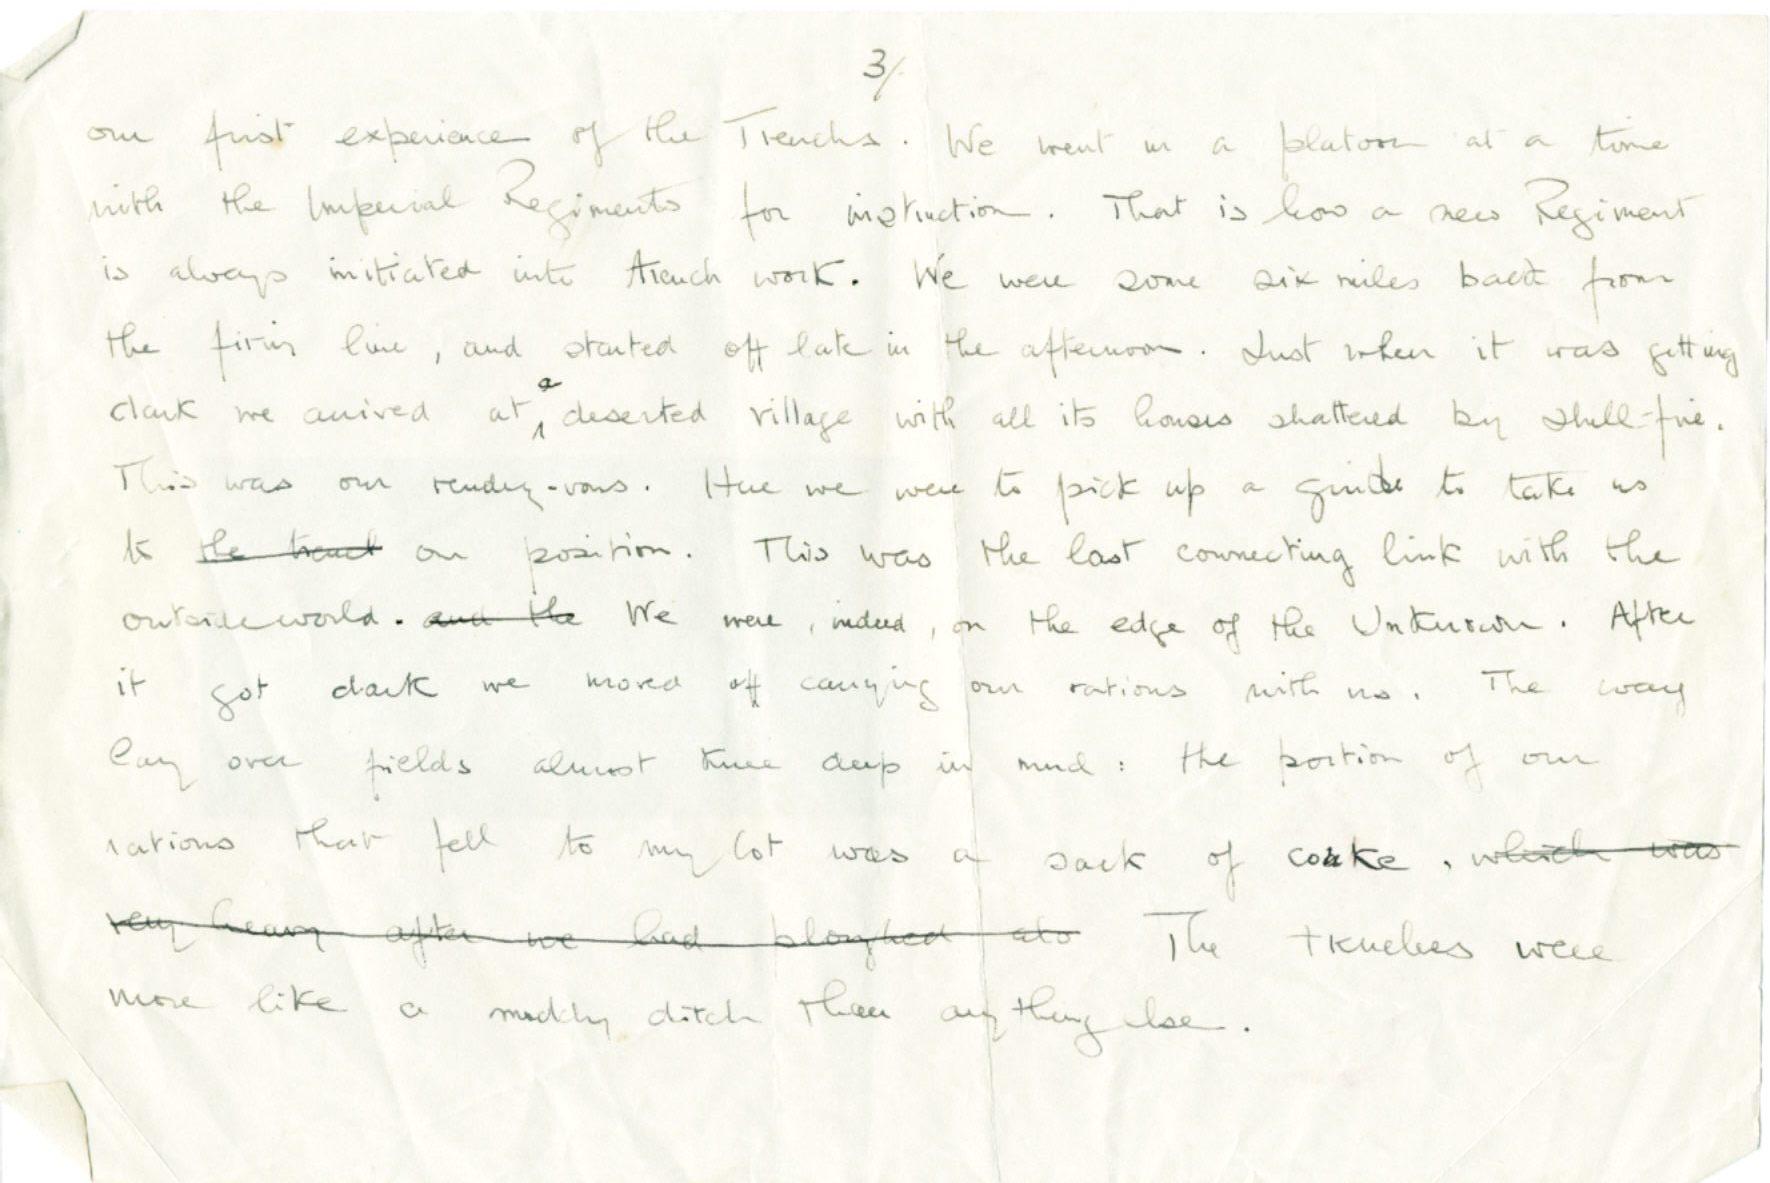 3/.
our first experience of the Trenchs. We went in a platoon at a time
with the Imperial Regiments for instruction. That is how a new Regiment
is always initiated into trench work. We were some six miles back from
the firing line, and started off late in the afternoon. Just when it was getting
dark we arrived at a deserted village with all its houses shattered by shell-fire.
This was our rendez-vous. Here we were to pick up a guide to take us
to the trench our position. This was the last connecting link with the
outside world. and the We were, indeed, on the edge of the Unknown. After
it got dark we moved off carrying our rations with us. The way
lay over fields almost knee deep in mud: the portion of our
rations that fell to my lot was a sack of coake. which was
very heavy after we had ploughed The trenches were
more like a muddy ditch than anything else.